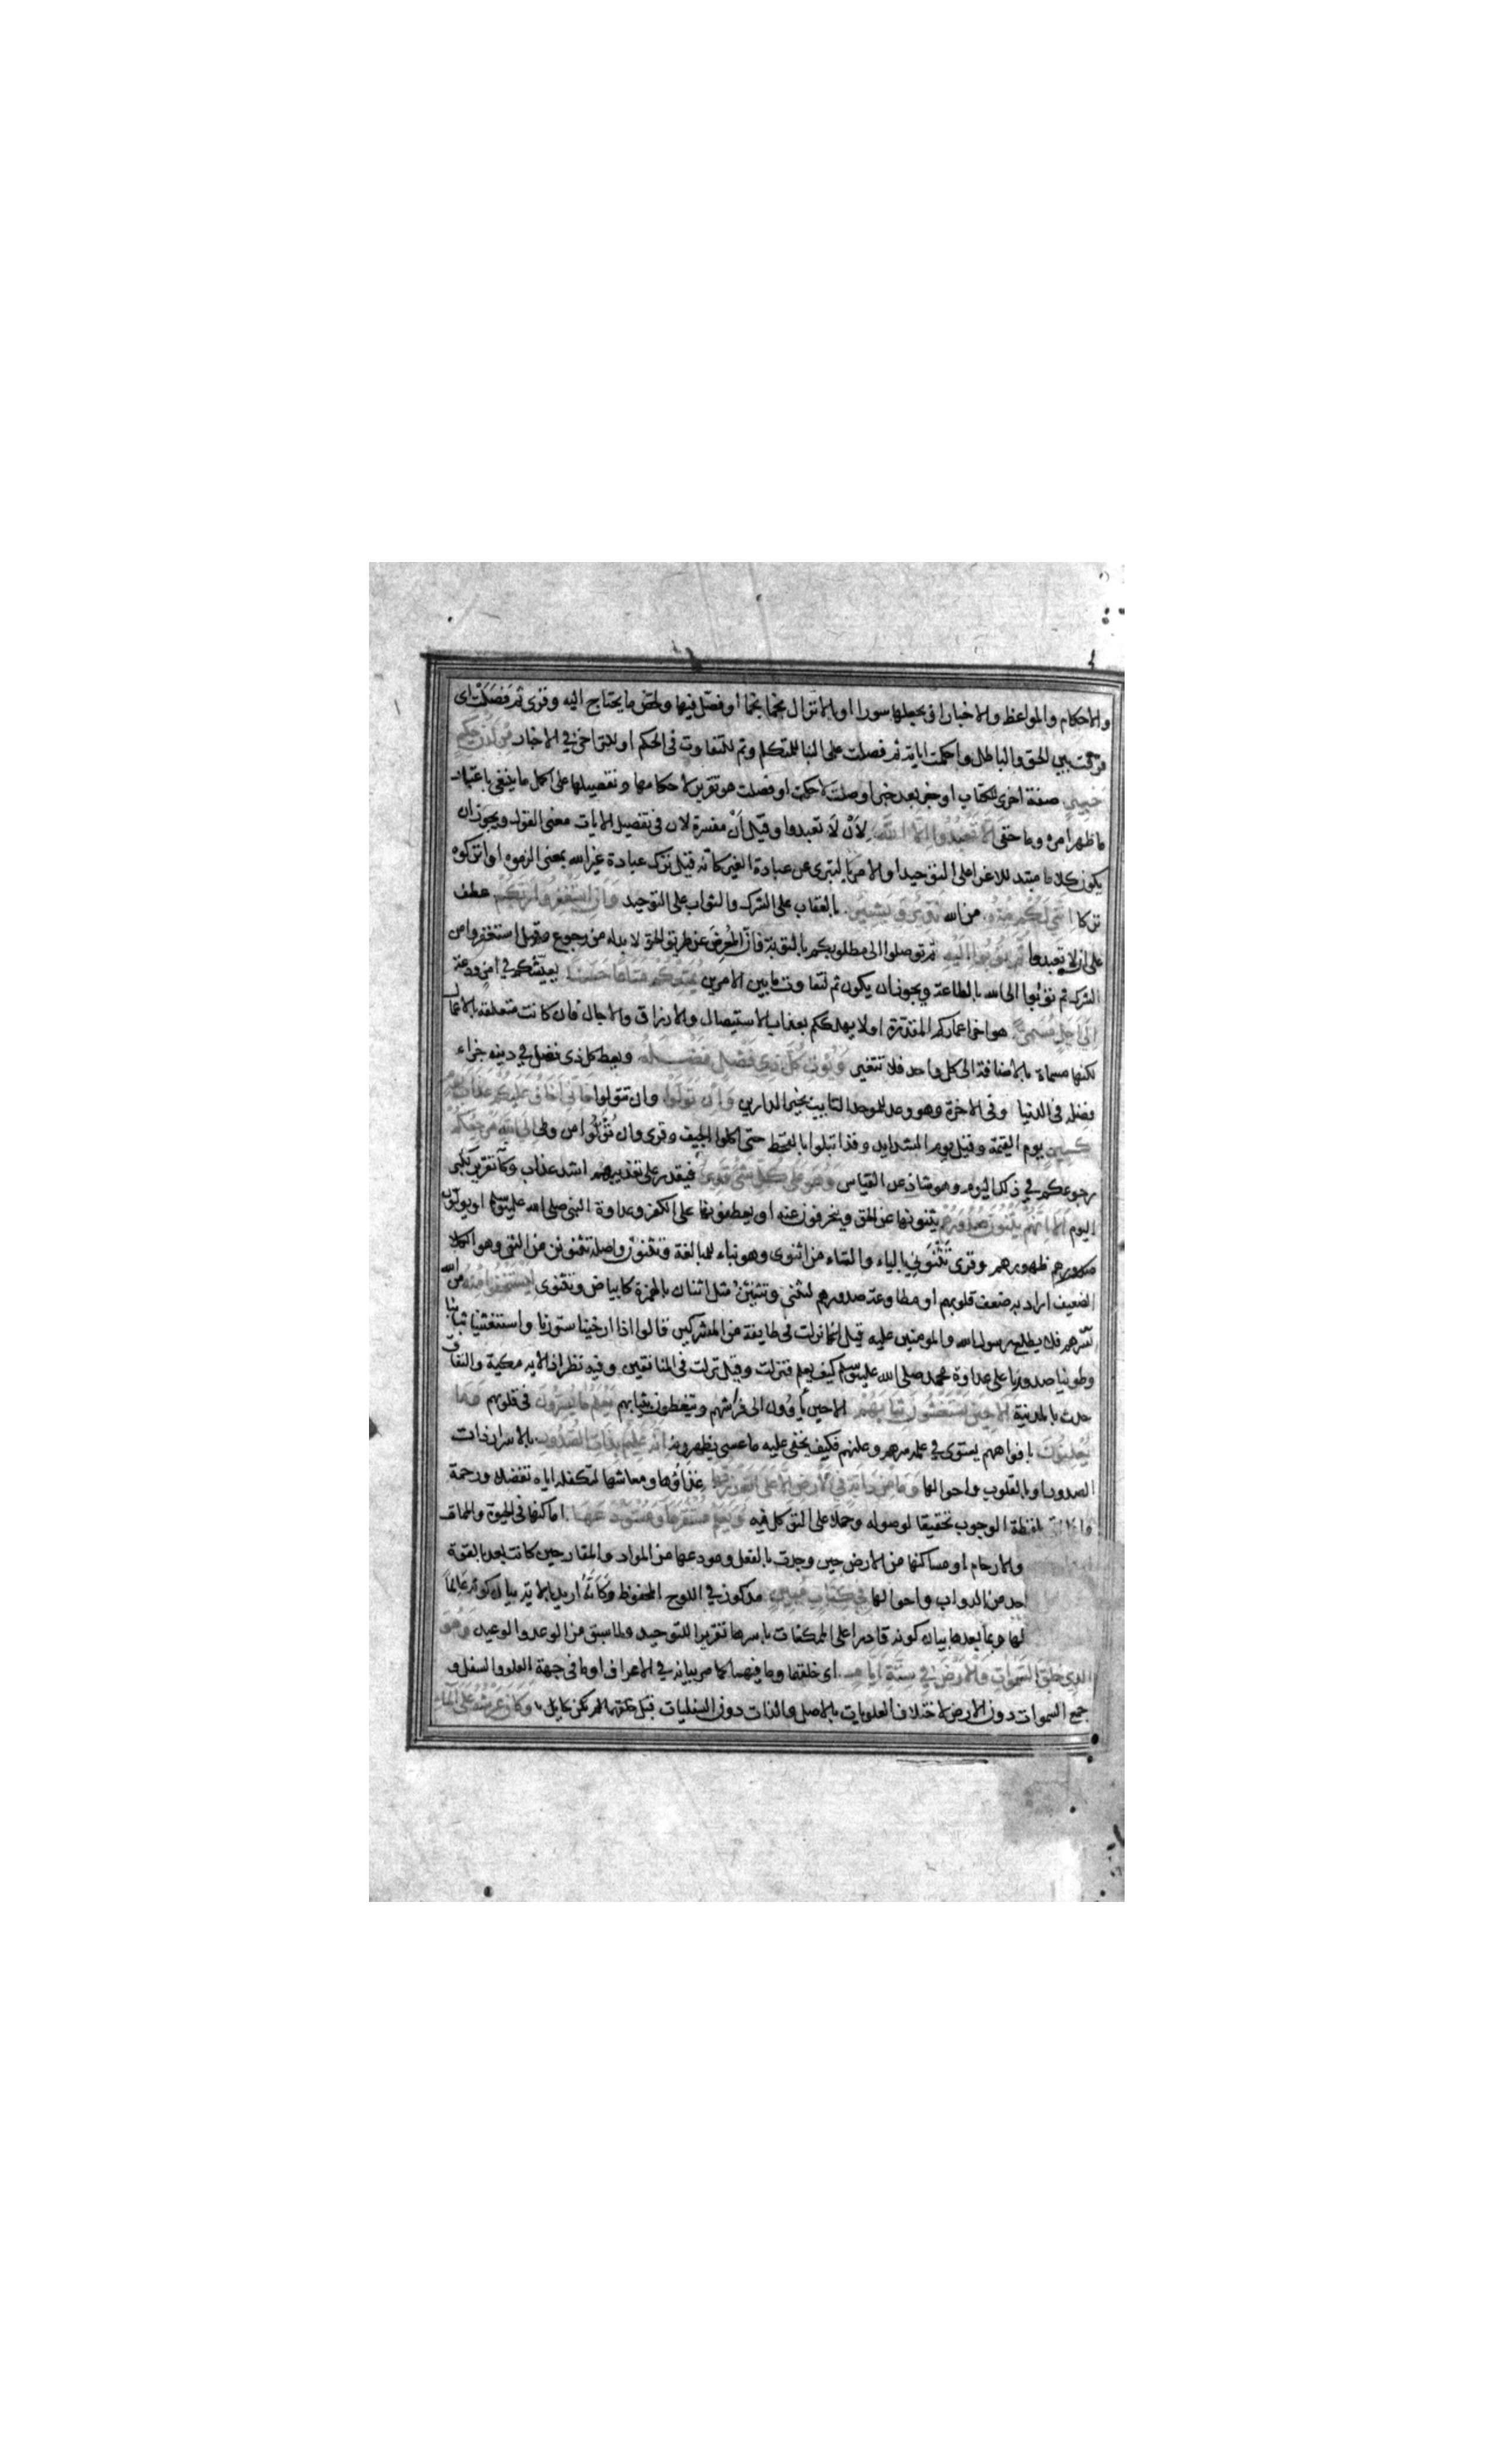 والاحكام والمواعظ والاخبار او بجعلها سورا او بالانزال نجما نجما او فصّل فيها ولخص ما يحتاج اليه وقرئ ثم فصلت اى
فرقت بين الحق والباطل واحكمت اياته ثم فصلت على البنا للمتكلم وثم للتفاوت فى الحكم او للتراخى فى الاخبار من لدن حكيم
خبير صفة اخرى للكتاب او خبر بعد خبر او صلة لاحكمت او فصلت وهو تقرير لاحكامها وتفصيلها على اكمل ما ينبغى باعتبار
ما ظهر امره وما خفى الا تعبدوا الا الله لأن لا تعبدوا وقيل أن مفسرة لان فى تفصيل الايات معنى القول ويجوز ان
يكون كلاما مبتدا للاغرا على التوحيد او الامر بالتبرى عن عبادة الغير كانه قيل ترك عبادة غير الله بمعنى الزموه او اتركوه
تركا اننى لكم منه من الله نذير وبشير بالعقاب على الشرك والثواب على التوحيد وان استغفروا ربكم عطف
على ان لا تعبدوا ثم توبوا اليه ثم توصلوا الى مطلوبكم بالتوبة فان المعرض عن طريق الحق لا بد له من رجوع وقيل استغفروا من
الشرك ثم توبوا الى الله بالطاعة ويجوز ان يكون ثم لتفاوت ما بين الامرين يمتعكم متاعا حسنا يعيشكم فى امن ودعة
الى اجل مسمى هو اخر اعماركم المقدرة او لا يهلككم بعذاب الاستيصال والارزاق والاجال فان كانت متعلقة بالاعمال
لكنها مسماة بالاضافة الى كل واحد فلا تتغير ويؤت كل ذى فضل فضله ويعط كل ذى فضل فى دينه جزاء
فضله فى الدنيا وفى الاخرة وهو وعد للموحد التايب بخير الدارين وان تولوا وان تتولوا فانى اخاف عليكم عذاب يوم
كبير يوم القيمة وقيل يوم الشدايد وقد ابتلوا بالقحط حتى اكلوا الجيف وقرئ وان تولوا من ولى الى الله مرجعكم
رجوعكم فى ذلك اليوم وهو شاذ عن القياس وهو على كل شئ قدير فيقدر على تعذيبهم اشد عذاب وكأنه تقرير لكبر
اليوم الا انهم يثنون صدورهم يثنونها عن الحق وينحرفون عنه او يعطفونها على الكفر وعداوة النبى صلى الله عليه وسلم او يولون
صدورهم ظهورهم وقرئ تثنونى بالياء والتاء من اثنونى وهو بناء للمبالغة وتثنون واصله تثنونن من الثن وهو الكلا
الضعيف اراد به ضعف قلوبهم او مطاوعة صدورهم لثنى وتثنئن مثل اثنان بالهمزة كابياض وتثنوى ليستخفوا منه من الله
بسرهم فلا يطلع رسول الله والمومنين عليه قيل انها نزلت فى طايفة من المشركين قالوا اذا ارخينا ستورنا واستغشينا ثيابنا
وطوينا صدورنا على عداوة محمد صلى الله عليه وسلم كيف يعلم فنزلت وقيل نزلت فى المنافقين وفيه نظر اذ الايه مكية والنفاق
حدث بالمدينة الا حين يستغشون ثيابهم الا حين يأوون الى فراشهم ويتغطون بثيابهم يعلم ما يسرون فى قلوبهم وما
يعلنون بافواههم يستوى فى علمه سرهم وعلنهم فكيف يخفى عليه ما عسى يظهرونه انه عليم بذات الصدور بالاسرار ذات
الصدور او بالقلوب واحوالها وما من دابة فى الارض الا على الله رزقها غذاؤها ومعاشها لتكفله اياه تفضلا ورحمة
بلفظة الوجوب تحقيقا لوصوله وحملا على التوكل فيه ويعلم مستقرها ومستودعها اماكنها فى الحيوة والممات
والارحام او مساكنها من الارض حين وجدت بالفعل ومودعها من المواد والمقار حين كانت بعد بالقوة
احد من الدواب واحوالها فى كتاب مبين مذكور فى اللوح المحفوظ وكأنه اريد بالاية بيان كونه عالما
لها وبما بعدها بيان كونه قادرا على الممكنات باسرها تقريرا للتوحيد ولما سبق من الوعد والوعيد وهو
الذى خلق السموات والارض فى ستة ايام اى خلقها وما فيهما كما مر بيانه فى الاعراف او ما فى جهة العلو والسفل و
جمع السموات دون الارض لاختلاف العلويات بالاصل والذات دون السفليات قبل خلقهما لم يكن حايل وكان عرشه على الماء